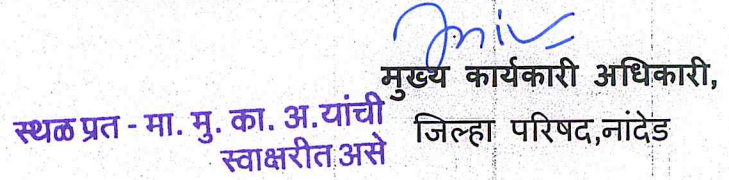 मुख्य कार्यकारी अधिकारी,
जिल्हा परिषद,नांदेड
स्थळ प्रत - मा. मु. का. अ.यांची
स्वाक्षरीत असे